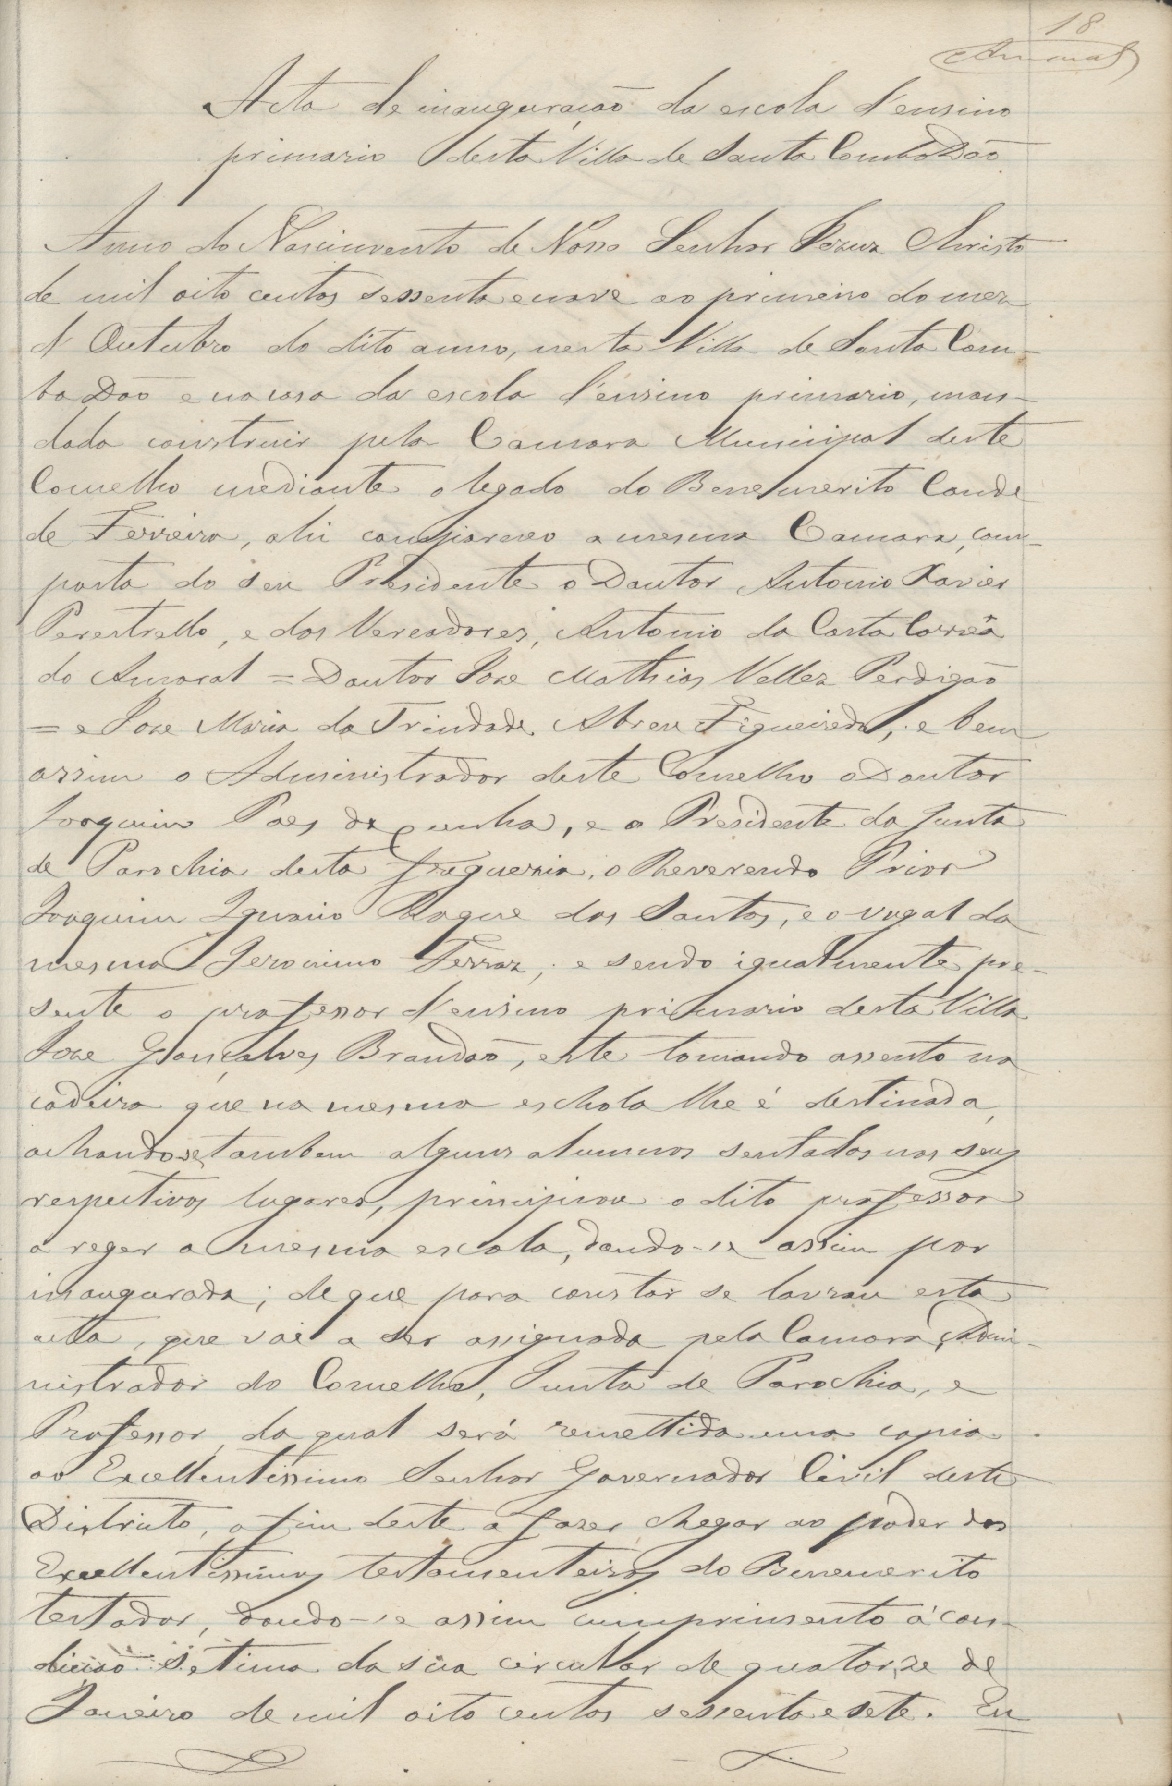 18
Amaral
Acta de inauguração da escola d'ensino
primario desta Villa de Santa CombaDão
Anno do Nascimento de Nosso Senhor Jezuz Christo
de mil oito centos sessenta e nove ao primeiro do mez
d'Outubro do dito anno, nesta Villa de Santa Com-
ba Dão e na casa da escola d'ensino primario, man-
dada construir pela Camara Municipal deste
Concelho mediante o legado do Benemerito Conde
de Ferreira, ahi compareceo a mesma Camara, com-
posta do seu Presidente o Doutor Antonio Xavier
Perestrello, e dos Vereadores, Antonio da Costa Corrêa
do Amaral = Doutor Jose Mathias Vellez Perdigão
= e Jose Maria da Trindade Abreu Figueiredo, e bem
assim o Administrador deste Concelho o Doutor
Joaquim Paes da Cunha, e o Presidente da Junta
de Parochia desta freguezia, o Reverendo Prior
Joaquim Ignacio Roque dos Santos, e o vogal da
mesma Jeronimo Ferraz; e sendo igualmente pre-
sente o professor d'ensino primario desta Villa
Jose Gonçalves Brandão, este tomando assento na
cadeira que na mesma eschola lhe é destinada,
achando-se tambem alguns alumnos sentados nos seus
respectivos lugares, principiou o dito professor
a reger a mesma escola, dando-se assim por
inaugurada; de que para constar se lavrou esta
acta, que vae a ser assignada pela Camara, Admi-
nistrador do Concelho, Junta de Parochia, e
Professor, da qual será remettida uma copia
ao Excellentissimo Senhor Governador Civil deste
Districto, a fim deste a fazer chegar ao poder dos
Excellentissimos testamenteiros do Benemerito
testador, dando-se assim cumprimento á con-
dicão setima da sua circular de quatorze de
Janeiro de mil oito centos sessenta e sete. Eu